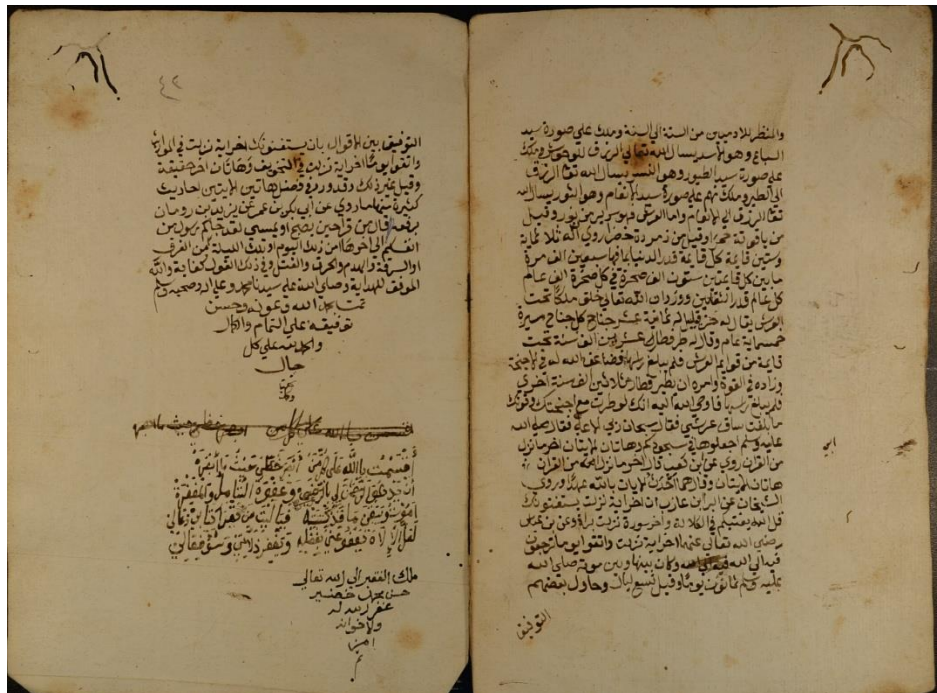 والمنظر للادميين من السنة الى السنة وملك على صورة سيد
السباع وهو الاسد يسال الله تعالى الرزق للوحوش وملك
على صورة سيد الطيور وهو النسر يسال الله تعا الرزق
الى الطير وملك منهم على صورة سيد الانعام وهو الثور يسال الله
تعا الرزق الى الانعام واما العرش فهو سرير من نور وقيل
من ياقوتة حمرا وقيل من زمردة خضرا روي ان له ثلاثماية
وستين قايمة كل قايمة قدر الدنيا سبعين الف مرة
ما بين كل قايمتين ستون الف صحرة في كل صحرة الف عالم
كل عالم قدر الثقلين وورد ان الله تعالى خلق ملكا تحت
العرش يقال له حزقيايل له ثمانية عشر جناح كل جناح مسيرة
خمسماية عام وقال له طر فطار عشرين الف سنة تحت
قايمة من قوايم العرش فلم يبلغ راسها فضاعف الله له في الاجنحة
وزاده في القوة وامره ان يطير فطار ثلاثين الف سنة اخرى
فلم يبلغ راسها فاوحى الله اليه انك لو طرت مع اجنحتك وقوتك
ما بلغت ساق عرشي فقال سبحان ربي الاعلى فقال صلى الله
عليه وسلم اجعلوها في سجودكم وهاتان الايتان اخر ما نزل
من القران روي عن ابي بن كعب قال اخر ما نزل من القران
هاتان الايتان وقال هما احدث الايات بالله عهدا وروي
الشيخان عن البرا بن عازب ان اخر اية نزلت يستفتونك
قل الله يفتيكم في الكلالة واخر سورة نزلت براة وعن بن عباس
رضي الله تعالى عنهما اخر اية نزلت واتقوا يوما ترجعون
فيه الى الله وكان بينها وبين موته صلى الله
عليه وسلم ثمانون يوما وقيل تسع ليال وحاول بعضهم
التوفيق
٤٢
التوفيق بين الاقوال بان يستفتونك اخر اية نزلت في المواريث
واتقوا يوما اخر اية نزلت في التخويف وهاتان اخر حقيقة
وقيل غير ذلك وقد ورد في فضل هاتين الايتين احاديث
كثيرة منها ما روي عن ابي بكر بن عمر عن يزيد بن رومان
يرفعه قال من قرا حين يصبح او يمسي لقد جاكم رسول من
انفسكم الى اخرها من ذلك اليوم وتلك الليلة امن الغرق
او السرقة والهدم والحرق والقتل وفي ذلك القول كفاية والله
الموفق للهداية وصلى الله على سيدنا محمد وعلى اله وصحبه وسلم
تمت بحمد الله وعونه وحسن
توفيقه على التمام والكمال
والحمد لله على كل
حال
اقسمت بالله على كل من ابصر خطي حيث ما ابصر
اقسمت بالله على كل من ابصر خطي حيث ما ابصره
ان يدعو الرحمن لي بالرحمة وعفوه الشامل والمغفرة
اموت ويبقى ما قد كتبته فيا ليت من يقرا كتابي دعا لي
لعل الاله يعفو عني بفضله ويغفر زلاتي وسو فعالي
ملك الفقير الى الله تعالى
حسن خضير
غفر الله له
ولاخوانه
امين